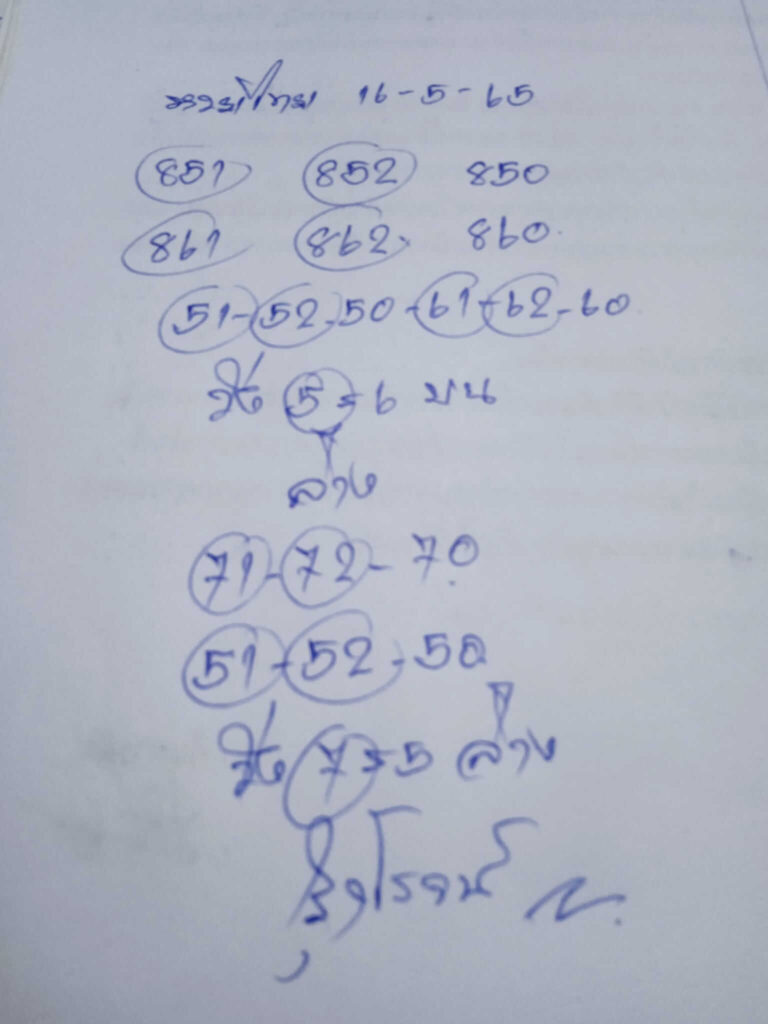 16-5-65
851 852 850
861 862 860
51-52-50-61-62-60
วิ่ง 5-6 บน
ล่าง
71-72-70
51-52-50
วิ่ง 7-5 ล่าง